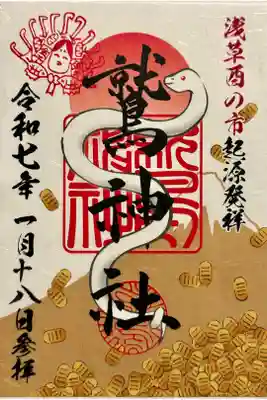 浅草酉の市起源発祥
鷲神社
令和七年 一月十八日参拝